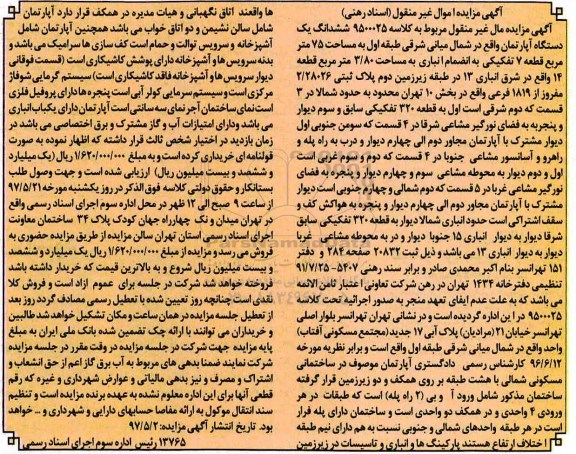 آگهی مزایده اموال غیر منقول (اسناد رهنی)
آگهی مزایده مال غیر منقول مربوط به کلاسه ۹۵۰۰۰۲۵ ششدانگ یک
دستگاه آپارتمان واقع در شمال میانی شرقی طبقه اول به مساحت ۷۵ متر
مربع قطعه ۷ تفکیکی به انضمام انباری به مساحت ۳/۸۰ متر مربع قطعه
۱۴ واقع در شرق انباری ۱۳ در طبقه زیرزمین دوم پلاک ثبتی ۲/۲۸۰۲۶
مفروز از ۱۸۱۹ فرعی واقع در بخش ۱۰ تهران محدود به حدود شمالا در ۳
قسمت که دوم شرقی است اول به قطعه ۳۲۰ تفکیکی سابق و سوم دیوار
و پنجره به فضای نورگیر مشاعی شرقا در ۴ قسمت که سومن جنوبی اول
دیوار مشترک با آپارتمان مجاور دوم الی چهارم دیوار و درب به راه پله و
راهرو و آسانسور مشاعی جنوبا در ۴ قسمت که دوم و سوم غربی است
اول و دوم دیوار به محوطه مشاعی سوم و چهارم دیوار و پنجره به فضای
نورگیر مشاعی غربا در ۵ قسمت که دوم شمالی و چهارم جنوبی است دیوار
مشترک با آپارتمان مجاور دوم الی چهارم دیوار و پنجره به هواکش کف و
سقف اشتراکی است حدود انباری شمالا دیوار به قطعه ۳۲۰ تفکیکی سابق
شرقا دیوار به دیوار انباری ۱۵ جنوبا دیوار و در به محوطه مشاعی غربا
دیوار به دیوار انباری ۱۳ می باشد و ذیل ثبت ۲۰۸۳۲۲ صفحه ۲۸۴ و دفتر
۱۵۱ تهرانسر بنام اکبر محمدی صادر و برابر سند رهنی ۵۴۰۷-۹۱/۷/۲۵
تنظیمی دفترخانه ۱۴۳۴ تهران در رهن شرکت تعاونی اعتبار ثامن الائمه
می باشد که به علت عدم ایفای تعهد منجر به صدور اجرائیه تحت کلاسه
۹۵۰۰۰۲۵ در این اداره گردیده است و در نشانی تهران تهرانسر بلوار اصلی
تهرانسر خیابان ۲۱ (مرادیان) پلاک آبی ۱۷ جدید (مجتمع مسکونی آفتاب)
واحد واقع در شمال میانی شرقی طبقه اول واقع است و برابر نظریه مورخه
۹۶/۶/۱۲ کارشناس رسمی دادگستری آپارتمان موصوف در ساختمانی
مسکونی شمالی با هشت طبقه بر روی همکف و دو زیرزمین قرار گرفته
ساختمان مذکور شامل ورود آ و بی (۲ راه پله) است که طبقات در هر
ورودی ۴ واحدی و در همکف دو واحدی است و ساختمان دارای پله فرار
است در هر طبقه واحدهای شمالی و جنوبی نسبت به هم دارای نیم طبقه
اختلاف ارتفاع هستند پارکینگ ها و انباری و تاسیسات در زیرزمین
ها واقعند اتاق نگهبانی و هیات مدیره در همکف قرار دارد آپارتمان
شامل سالن نشیمن و دو اتاق خواب می باشد همچنین آپارتمان شامل
آشپزخانه و سرویس توالت و حمام است کف سازی ها سرامیک می باشد و
بدنه سرویس ها و آشپزخانه دارای پوشش کاشیکاری است (قسمت فوقانی
دیوار سرویس ها و آشپزخانه فاقد کاشیکاری است) سیستم گرمایی شوفاژ
مرکزی است و سیستم سرمایی کولر آبی است پنجره ها دارای پروفیل فلزی
است نمای ساختمان آجر نمای سه سانتی است آپارتمان دارای یکباب انباری
می باشد و دارای امتیازات آب و گاز مشترک و برق اختصاصی می باشد در
زمان بازدید در اختیار شخص ثالث قرار داشته که اظهار نموده به صورت
قولنامه ای خریداری کرده است و به مبلغ ۱/۶۲۰/۰۰۰/۰۰۰ ریال (یک میلیارد
و ششصد و بیست میلیون ریال) ارزیابی شده است و جهت وصول طلب
بستانکار و حقوق دولتی کلاسه فوق الذکر در روز یکشنبه مورخه ۹۷/۵/۲۱
از ساعت ۹ صبح الی ۱۲ ظهر در محل اداره سوم اجرای اسناد رسمی واقع
در تهران میدان ونک چهارراه جهان کودک پلاک ۳۴ ساختمان معاونت
اجرای اسناد رسمی استان تهران سالن مزایده از طریق مزایده حضوری به
فروش می رسد و مزایده از مبلغ ۱/۶۲۰/۰۰۰/۰۰۰ ریال یک میلیارد و ششصد
و بیست میلیون ریال شروع و به بالاترین قیمت که خریدار داشته باشد
فروخته خواهد شد شرکت در جلسه برای عموم آزاد است و فروش کلا
نقدی است چنانچه روز تعیین شده با تعطیل رسمی مصادف گردد روز بعد
از تعطیل جلسه مزایده در همان ساعت و مکان تشکیل خواهد شد طالبین
و خریداران می توانند با ارائه چک تضمین شده بانک ملی ایران به مبلغ
پایه مزایده جهت شرکت در جلسه مزایده در وقت مقرر در جلسه مزایده
شرکت نمایند ضمنا بدهی های مربوط به آب برق گاز اعم از حق انشعاب و
اشتراک و مصرف و نیز بدهی مالیاتی و عوارض شهرداری و غیره که رقم
قطعی آنها برای این اداره معلوم نشده به عهده برنده مزایده است و تنظیم
سند انتقال موکول به ارائه مفاصا حسابهای دارایی و شهرداری و ... خواهد
بود. تاریخ انتشار آگهی مزایده: ۹۷/۵/۲
۱۳۷۶۵ رئیس اداره سوم اجرای اسناد رسمی